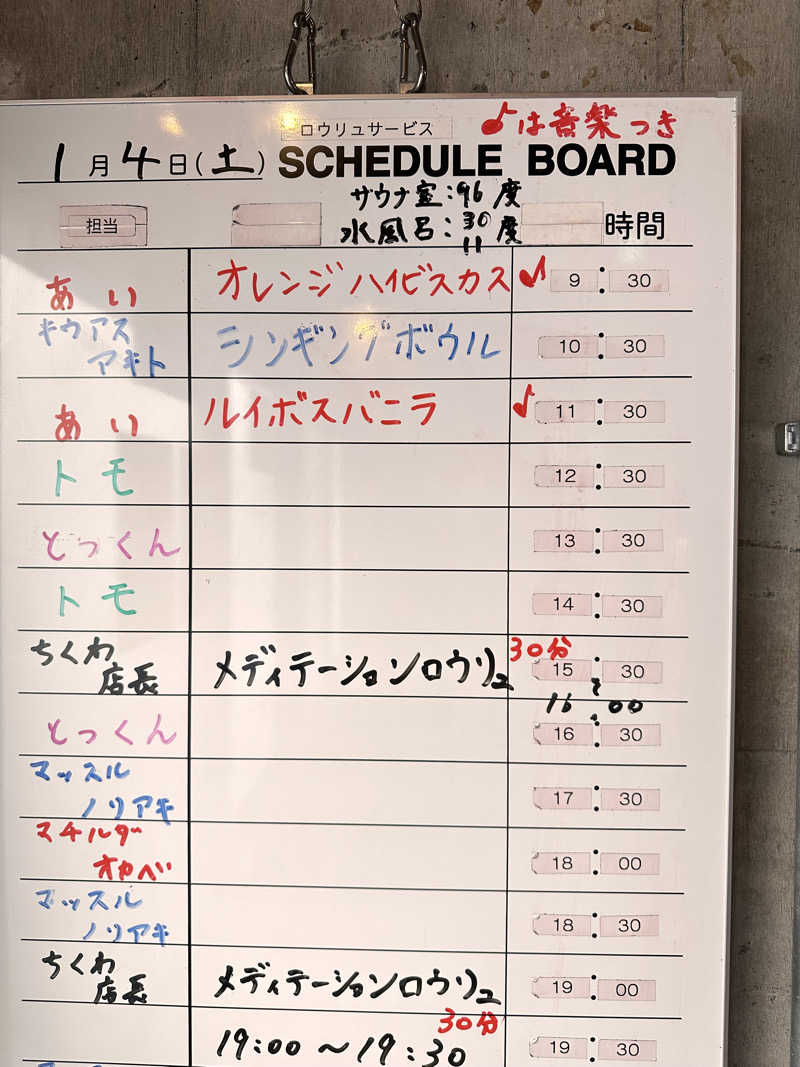 ロウリュサービス
♪は音楽つき
1月4日(土) SCHEDULE BOARD
サウナ室:96度
水風呂:30度
11
担当
時間
あい オレンジハイビスカス ♪ 9:30
キウアスアキト シンギングボウル 10:30
あい ルイボスバニラ ♪ 11:30
トモ 12:30
とっくん 13:30
トモ 14:30
ちくわ店長 メディテーションロウリュ 30分 15:30
〜
16:00
とっくん 16:30
マッスルノリアキ 17:30
マチルダオカベ 18:00
マッスルノリアキ 18:30
ちくわ店長 メディテーションロウリュ 19:00
30分
19:00〜19:30 19:30